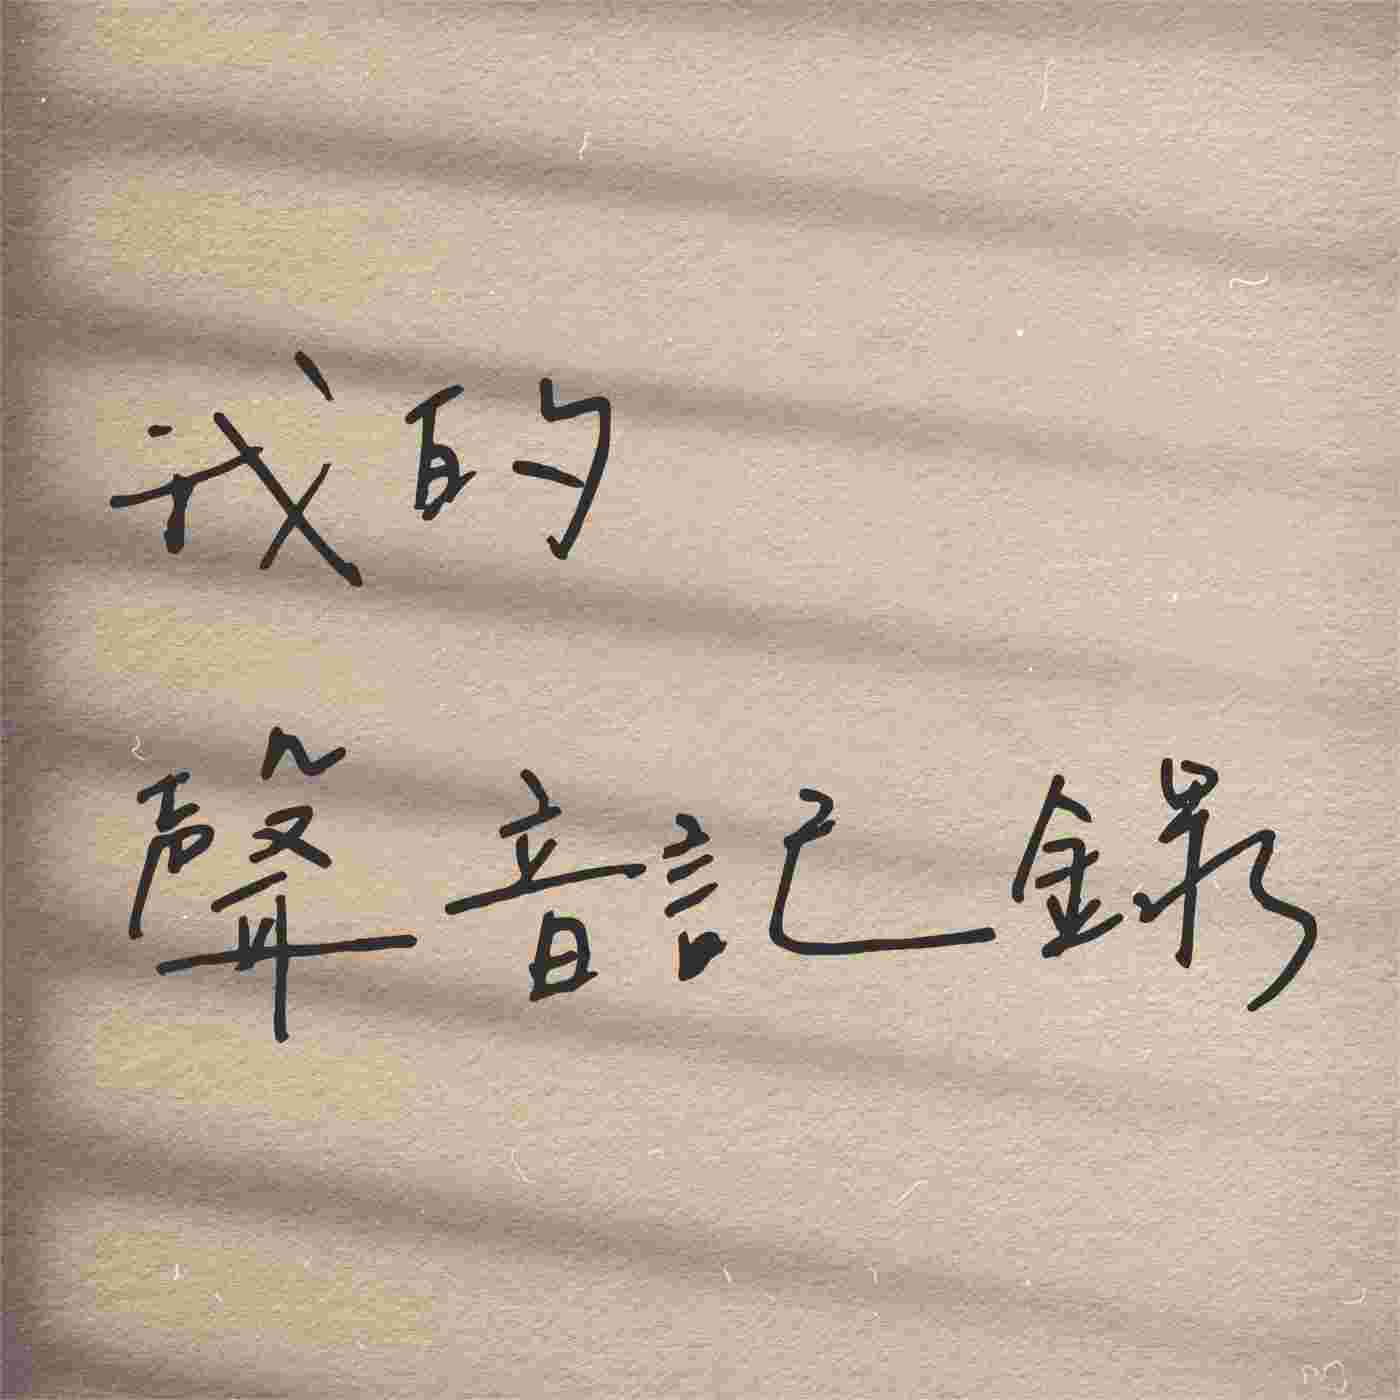 我的
聲音記錄